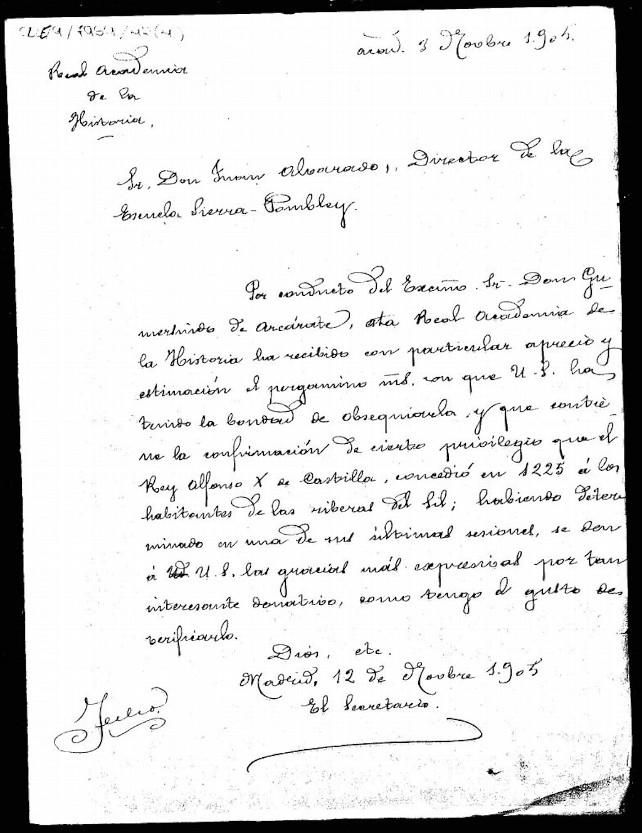 acad. 3 Novbre 1.905.
Real Academia
de la
Historia.
Sr. Don Juan Alvarado, Director de la
Escuela Sierra-Pambley.
Por conducto del Excmo. Sr. Don Gu-
mersindo de Azcárate, esta Real Academia de
la Historia ha recibido con particular aprecio y
estimación el pergamino ms. con que U. S. ha
tenido la bondad de obsequiarla, y que contie-
ne la confirmación de cierto privilegio que el
Rey Alfonso X de Castilla, concedió en 1225 á los
habitantes de las riberas del Sil; habiendo deter
minado en una de sus últimas sesiones, se den
á U. S. las gracias más expresivas por tan
interesante donativo, como tengo el gusto de
verificarlo.
Dios, etc.
Madrid, 12 de Novbre 1.905
El Secretario.
Fecho.